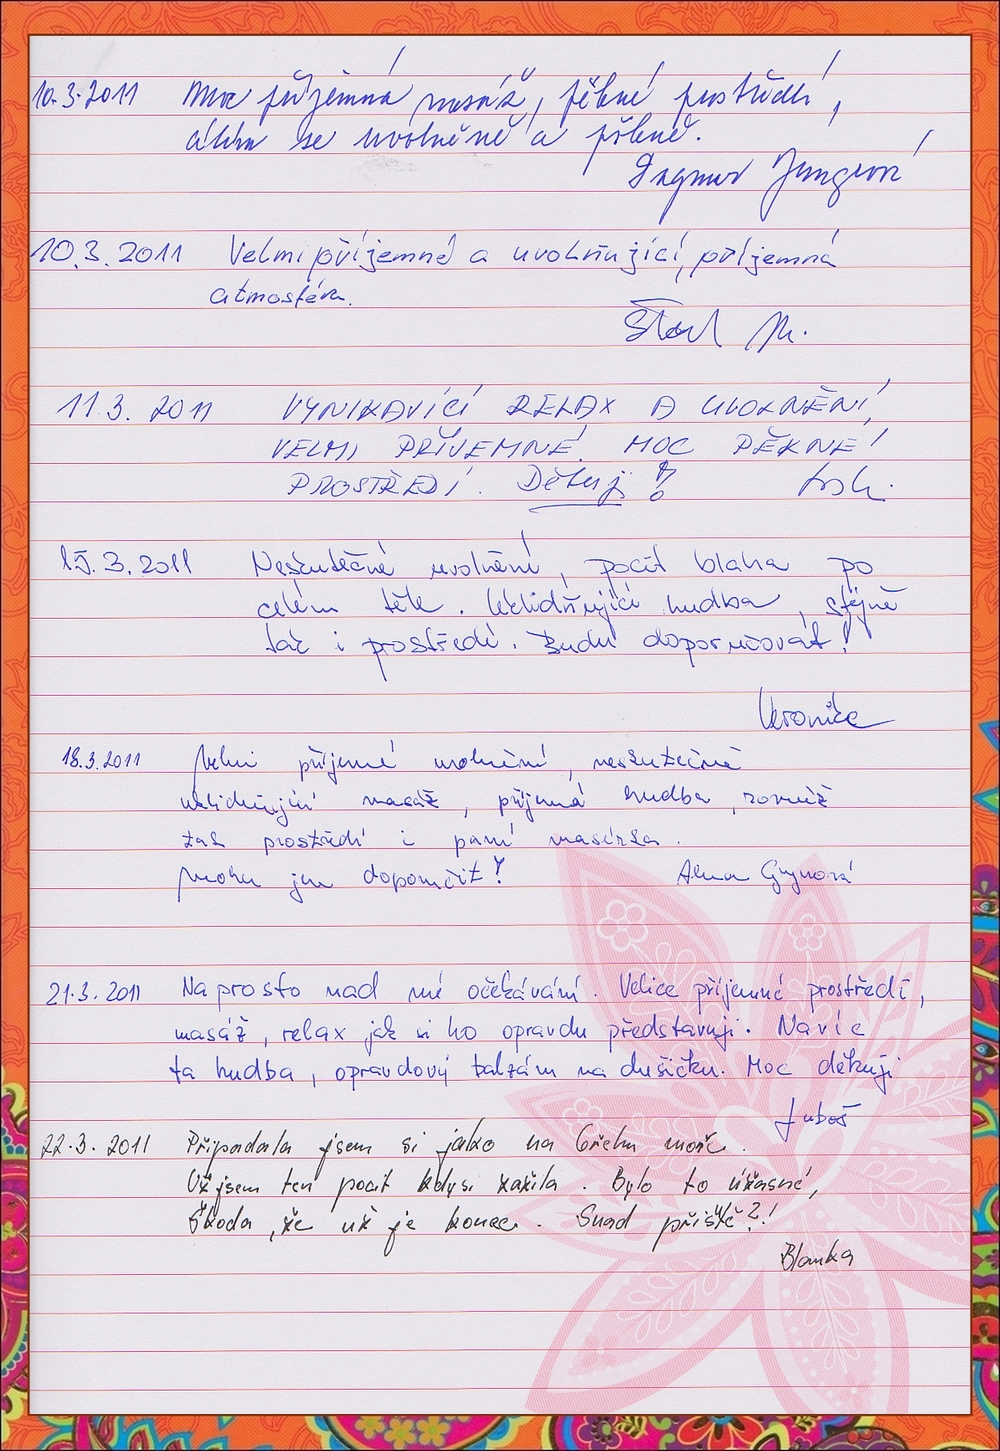 10.3.2011 Moc příjemná masáž, pěkné prostředí,
cítím se uvolněně a pěkně.
10.3.2011 Velmi příjemné a uvolňující, příjemná
atmosféra.
11.3. 2011 VYNIKAJÍCÍ RELAX A UVOLNĚNÍ
VELMI PŘÍJEMNÉ. MOC PĚKNÉ
PROSTŘEDÍ. Děkuji!
15.3.2011 Neskutečné uvolnění, pocit blaha po
celém těle. Uklidňující hudba, stejně
tak i prostředí. Budu doporučovat!
Veronika
18.3.2011 Velmi příjemné uvolnění, neskutečně
uklidňující masáž, příjemná hudba, rovněž
tak prostředí i paní masérka.
Mohu jen doporučit!
Alena
21.3.2011 Naprosto nad mé očekávání. Velice příjemné prostředí,
masáž, relax jak si ho opravdu představuji. Navíc
ta hudba, opravdový balzám na dušičku. Moc děkuji
Luboš
22.3.2011 Připadala jsem si jako na břehu moře.
Už jsem ten pocit kdysi zažila. Bylo to úžasné,
škoda, že už je konec. Snad příště?!
Blanka